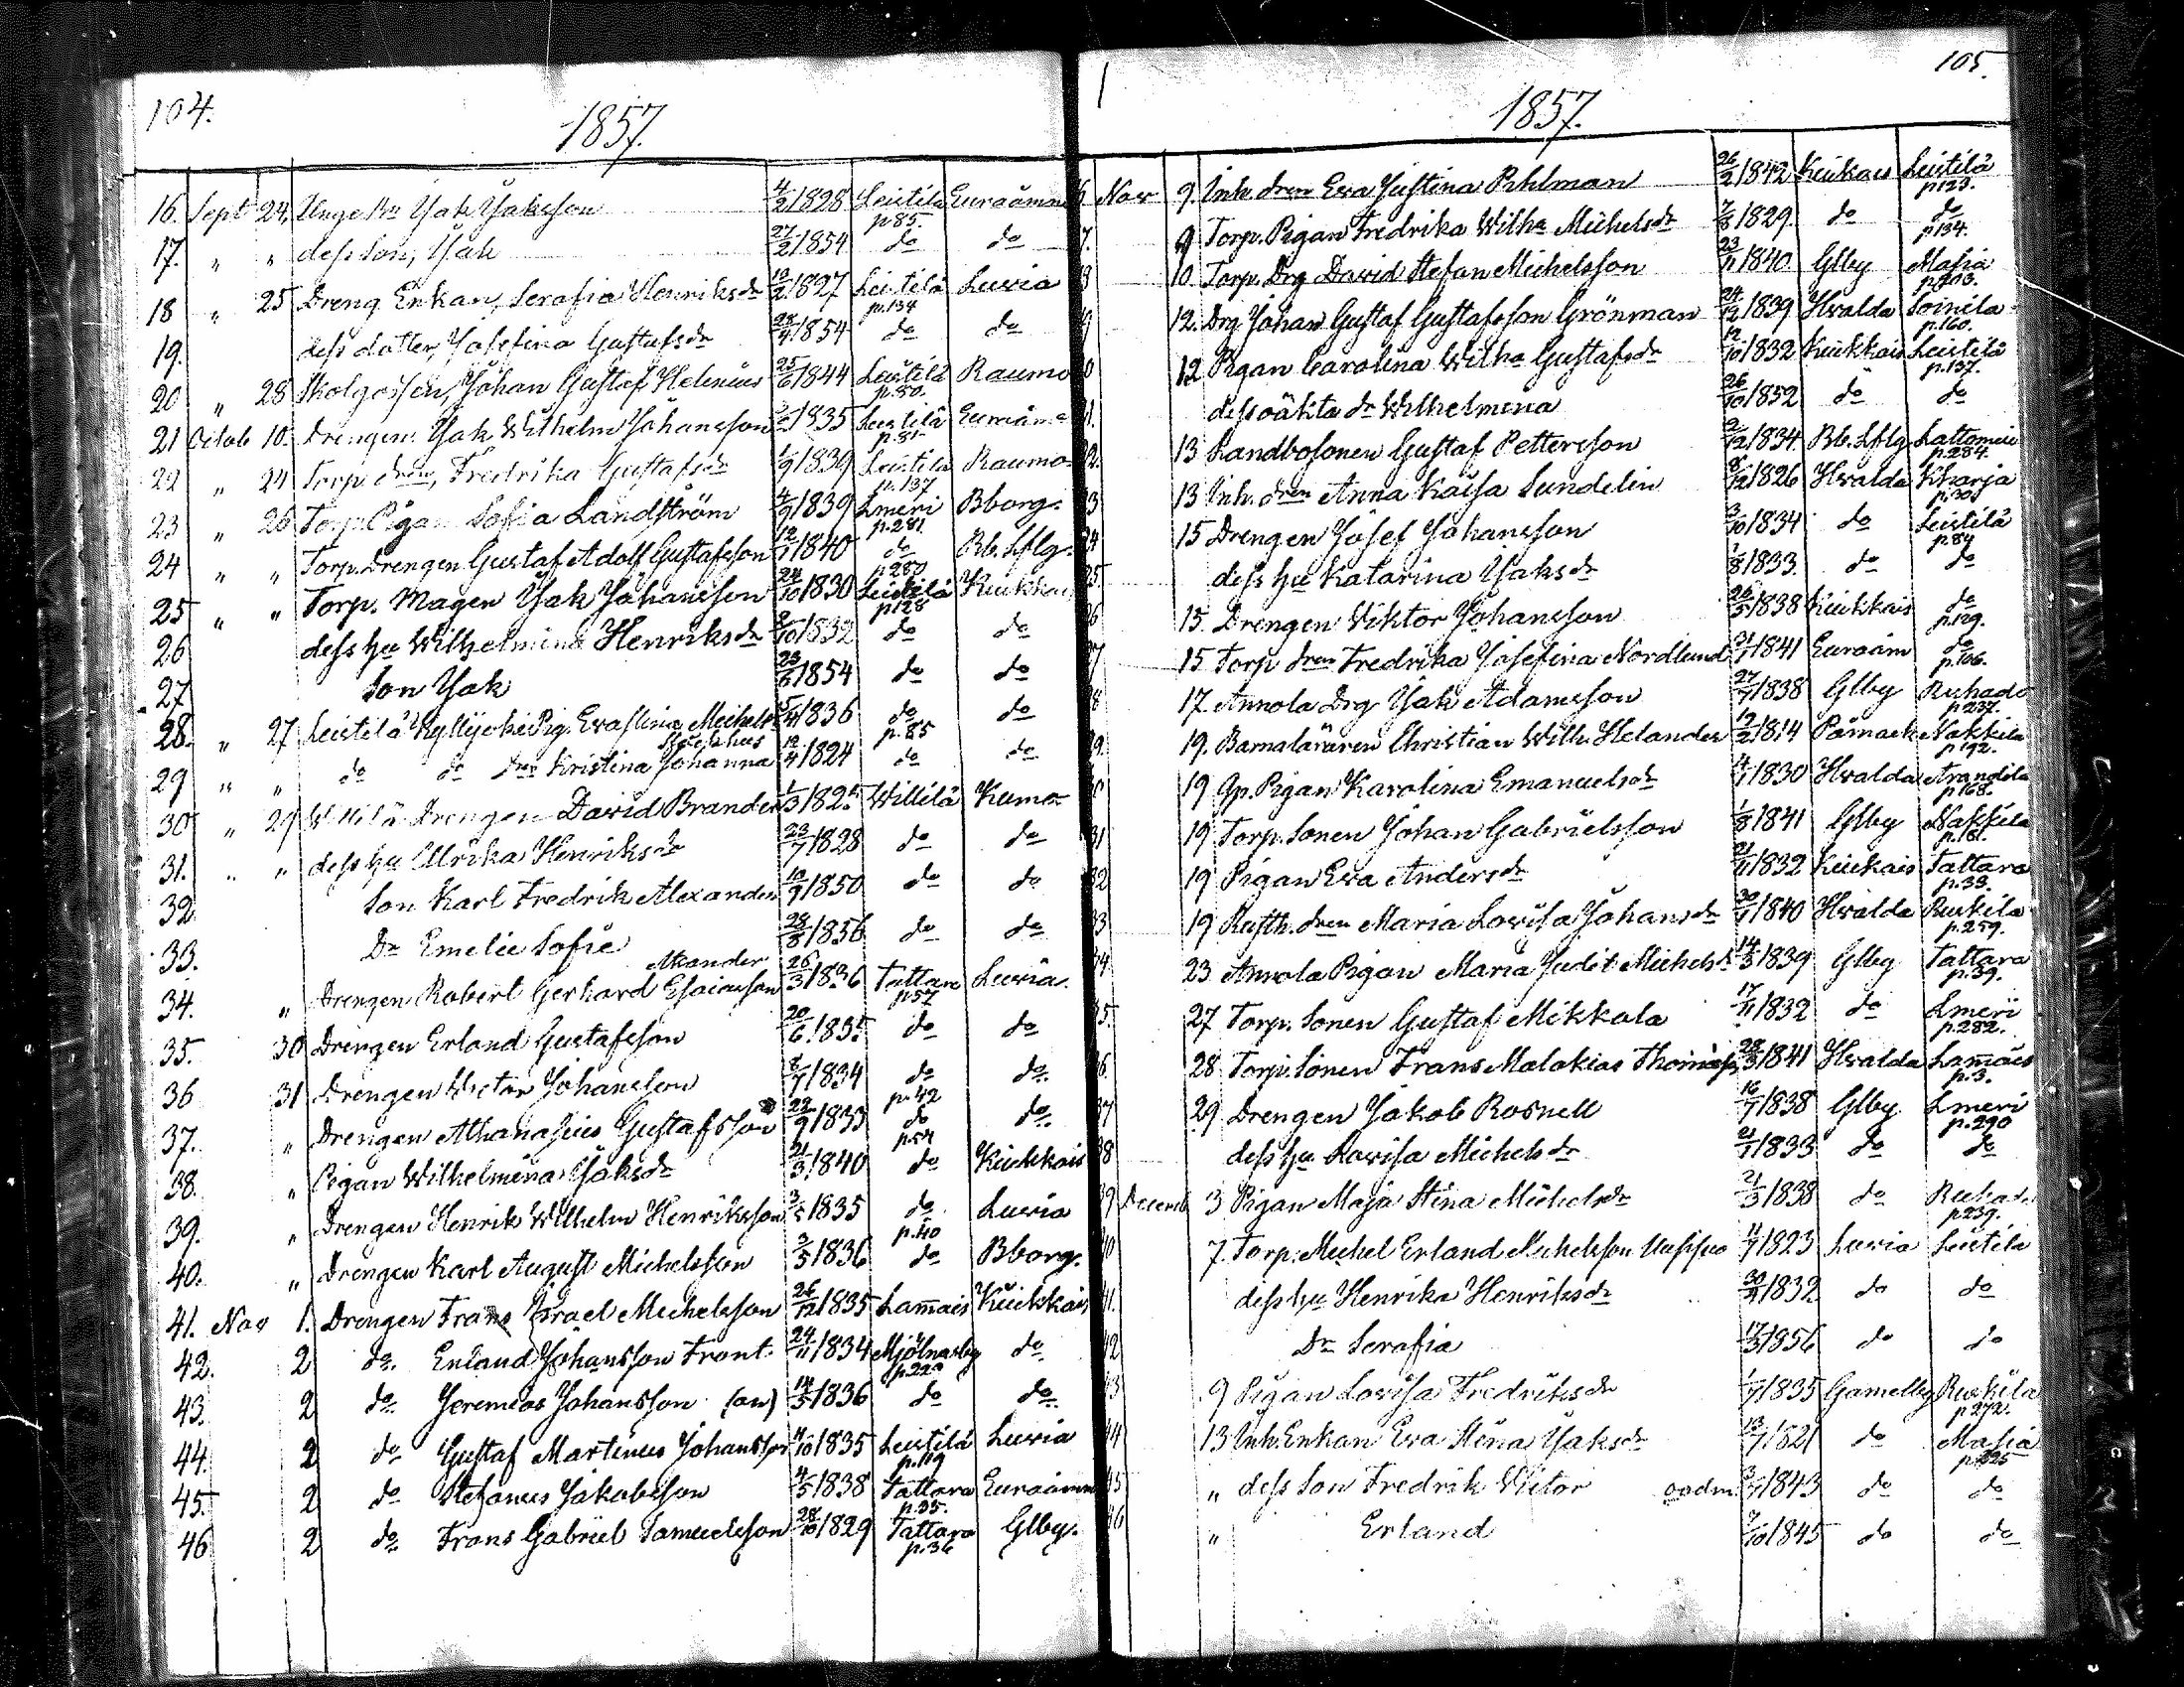 104.
1857.
16. Sept 24, Unge Bn Isak Isaksson 4/2 1828 Leistilä p 85. Euraåmin
17. " " dess Son, Isak 27/2 1854 do do
18 " 25 Dreng Enkan, Serafia Henriksdr 12/2 1827 Leistilä p. 134 Luvia
19. dess dotter, Josefina Gustafsdr 28/4 1854 do do
20 " 28 Skolgossen, Johan Gustaf Helenius 25/6 1844 Leistilä p. 80. Raumo
21 Octob 10. Drengen Isak Wilhelm Johansson 1835 Leistilä p. 81 Euraåm
22 " 24 Torp. dren, Fredrika Gustafsdr 1/9 1839 Leistilä p. 137 Raumo
23 " 26 Torp. Pigan Sofia Landström 4/9 1839 Lmeri p. 281. Bborg.
24 " " Torp. Drengen Gustaf Adolf Gustafsson 12/ 1840 do p 280 Bb. Lflg.
25 " " Torp. Magen Isak Johansson 24/10 1830 Leistilä p 128 Kiukkai
26 dess hu Wilhelmina Henriksdr 2/10 1832 do do
27 Son Isak 23/6 1854 do do
28. " 27 Leistilä Kyllijoki Pig. Eva Stina Michelsdr 5/4 1836 do p. 85 do
29 " " do do dren Kristina Johanna 12/4 1824 do do
30 " 29 Willilä Drengen David Brander 1/3 1825 Willilä Kumo
31. " " dess hu Ulrika Henriksdr 23/7 1828 do do
32 Son Karl Fredrik Alexander 10/9 1850 do do
33. Dr Emelie Sofie 28/8 1856 do do
34. " Drengen Robert Gerhard Esaiasson 26/3 1836 Tattara p 57 Luvia.
35. 30 Drengen Erland Gustafsson 20/6 1835 do do
36 31 Drengen Victor Johansson 8/7 1834 do p. 42 do
37. " Drengen Athanasius Gustafsson 22/9 1833 do p. 54 do
38. " Pigan Wilhelmina Isaksdr 21/3 1840 do Kiukkais
39. " Drengen Henrik Wilhelm Henriksson 3/5 1835 do p. 40 Luvia
40. " Drengen Karl August Michelsson 3/5 1836 do Bborg.
41. Nov 1. Drengen Frans Israel Michelsson 26/12 1835 Lam̄ais Kiukkais
42. 2 do. Erland Johansson Front. 24/11 1834 Mjölnarby p. 220 do
43. 2 do. Jeremias Johansson 14/5 1836 do do
44. 2 do Gustaf Martinus Johansson 11/10 1835 Leistilä p. 119 Luvia
45. 2 do Stefanus Jakobsson 4/5 1838 Tattara p. 35. Euraåmin
46 2 do Frans Gabriel Samuelsson 28/10 1829 Tattara p. 36 Glby.
105.
1857.
Nov 9. Inh. dren Eva Justina Pihlman 26/2 1842 Kiukais Leistilä p 123.
7. 9 Torp. Pigan Fredrika Wilha Michelsdr 7/8 1829. do do p 134.
8 10 Torp. Drg David Stefan Michelsson 23/11 1840 Glby Masia p 213.
9 12. Drg Johan Gustaf Gustafsson Grönman 24/12 1839 Hvalda Soinila p. 160.
0 12 Pigan Carolina Wilha Gustafsdr 12/10 1832 Kiukkais Leistilä p. 137.
1. dess oäkta dr Wilhelmina 26/10 1852 do do
2. 13 Landbosonen Gustaf Pettersson 2/12 1834. Bb. Lflg Lattomeri p. 284.
3 13 Inh. dren Anna Kaisa Sundelin 8/12 1826 Hvalda Kharja p. 30
4 15 Drengen Josef Johansson 3/10 1834 do Leistilä p. 84
25. dess hu Katarina Isaksdr 1/8 1833. do do
6 15. Drengen Viktor Johansson 26/5 1838 Kiukkais do p. 129.
7 15 Torp dren Fredrika Josefina Nordlund 21/ 1841 Euraåm do p. 106.
8 17 Annola Drg Isak Adamsson 27/9 1838 Glby Ruhade p 237.
9. 19. Barnaläraren Christian Wilh. Helander 12/2 1814 Påmark Nakkila p 192.
0 19 Gp. Pigan Karolina Emanuelsdr 4/1 1830 Hvalda Arandila p 168.
31 19 Torp. Sonen Johan Gabrielsson 1/8 1841 Glby Nakkila p. 181.
32 19 Pigan Eva Andersdr 21/11 1832 Kiukais Tattara p. 33.
33 19 Rusth. dren Maria Lovisa Johansdr 30/1 1840 Hvalda Ruskila p. 259.
34 23 Annola Pigan Maria Judit Michelsdr 14/3 1839 Glby Tattara p. 39.
35. 27 Torp. Sonen Gustaf Mikkola 17/11 1832 do Lmeri p. 282.
6. 28 Torp. Sonen Frans Malakias Thomass. 28/3 1841 Hvalda Lam̄ais p. 3.
37 29 Drengen Jakob Rosnell 16/7 1838 Glby Lmeri p. 290
38 dess hu Lovisa Michelsdr 21/ 1833 do do
39 Decemb 3 Pigan Maja Stina Michelsdr 21/3 1838 do Ruhade p 239.
0 7. Torp. Michel Erland Michelsson 11/9 1823 Luvia Leistilä
41. dess hu Henrika Henriksdr 30/ 1832 do do
42 Dr Serafia 17/3 1856 do do
43 9 Pigan Lovisa Fredriksdr 1/7 1835 Gamelby Ruskila p 272.
44 13 Inh. Enkan Eva Stina Isaksdr 13/7 1821 do Masia p 225
45 " dess Son Fredrik Victor oadm. 3/ 1843 do do
46 " Erland 9/10 1845 do do